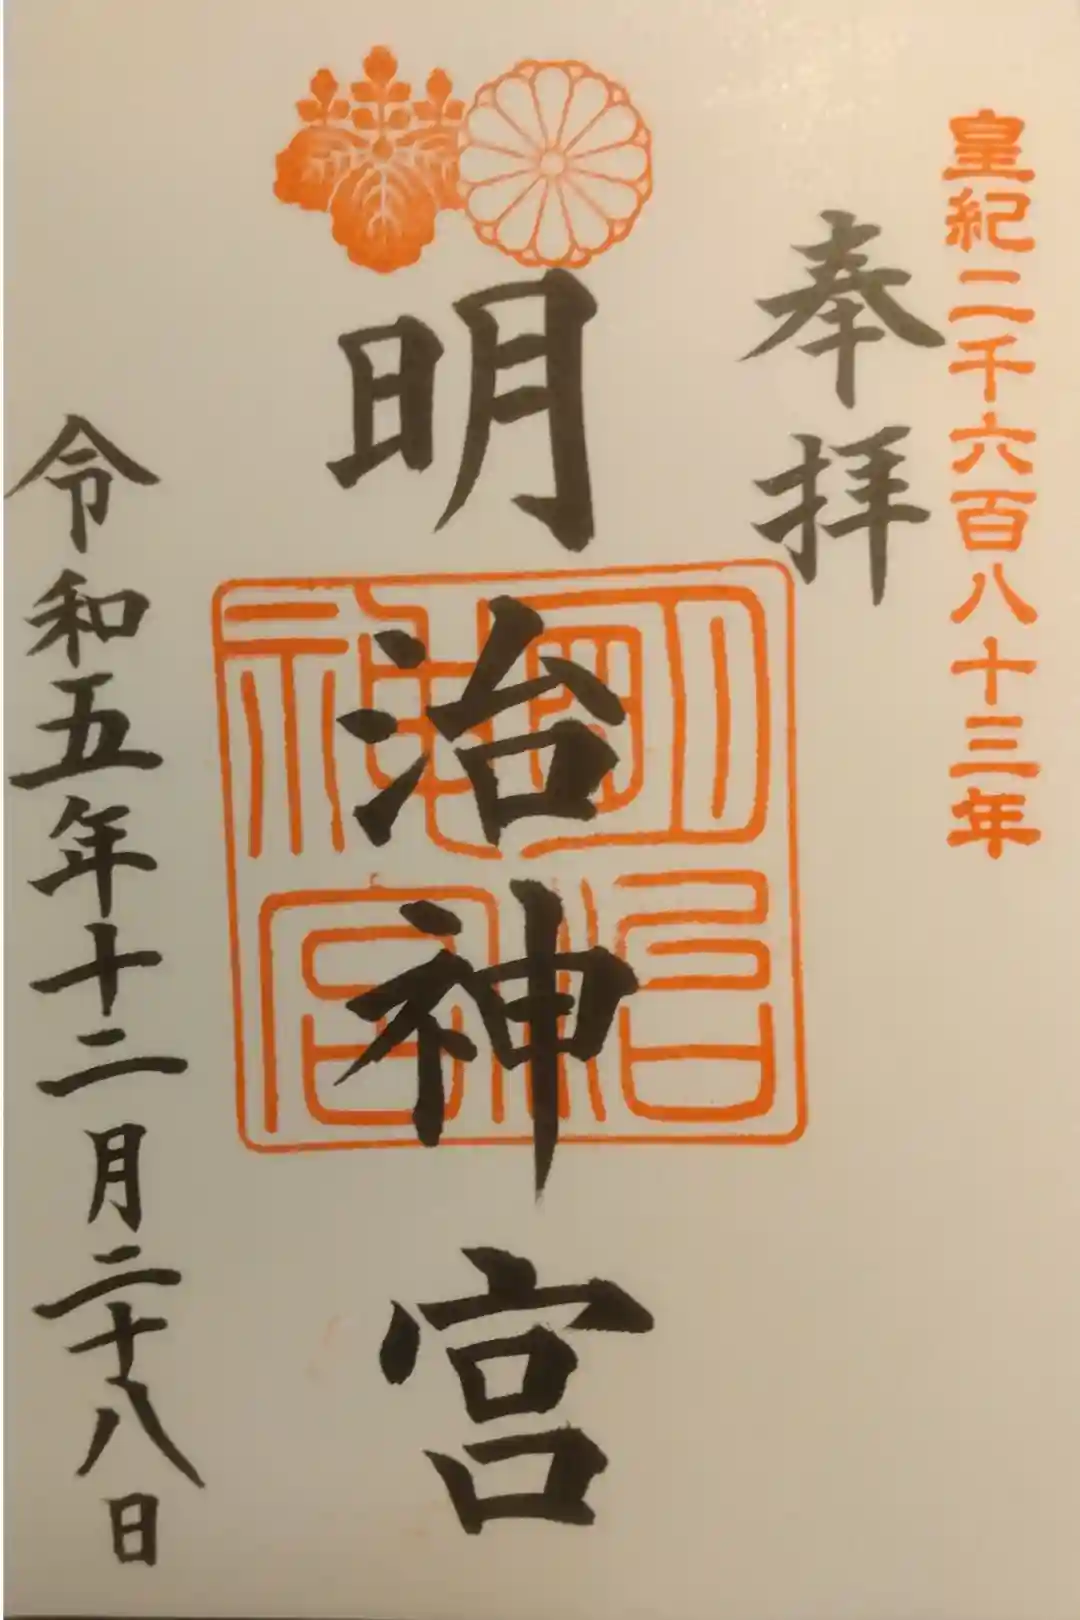 皇紀二千六百八十三年
奉拝
明治神宮
明治
神宮
令和五年十二月二十八日